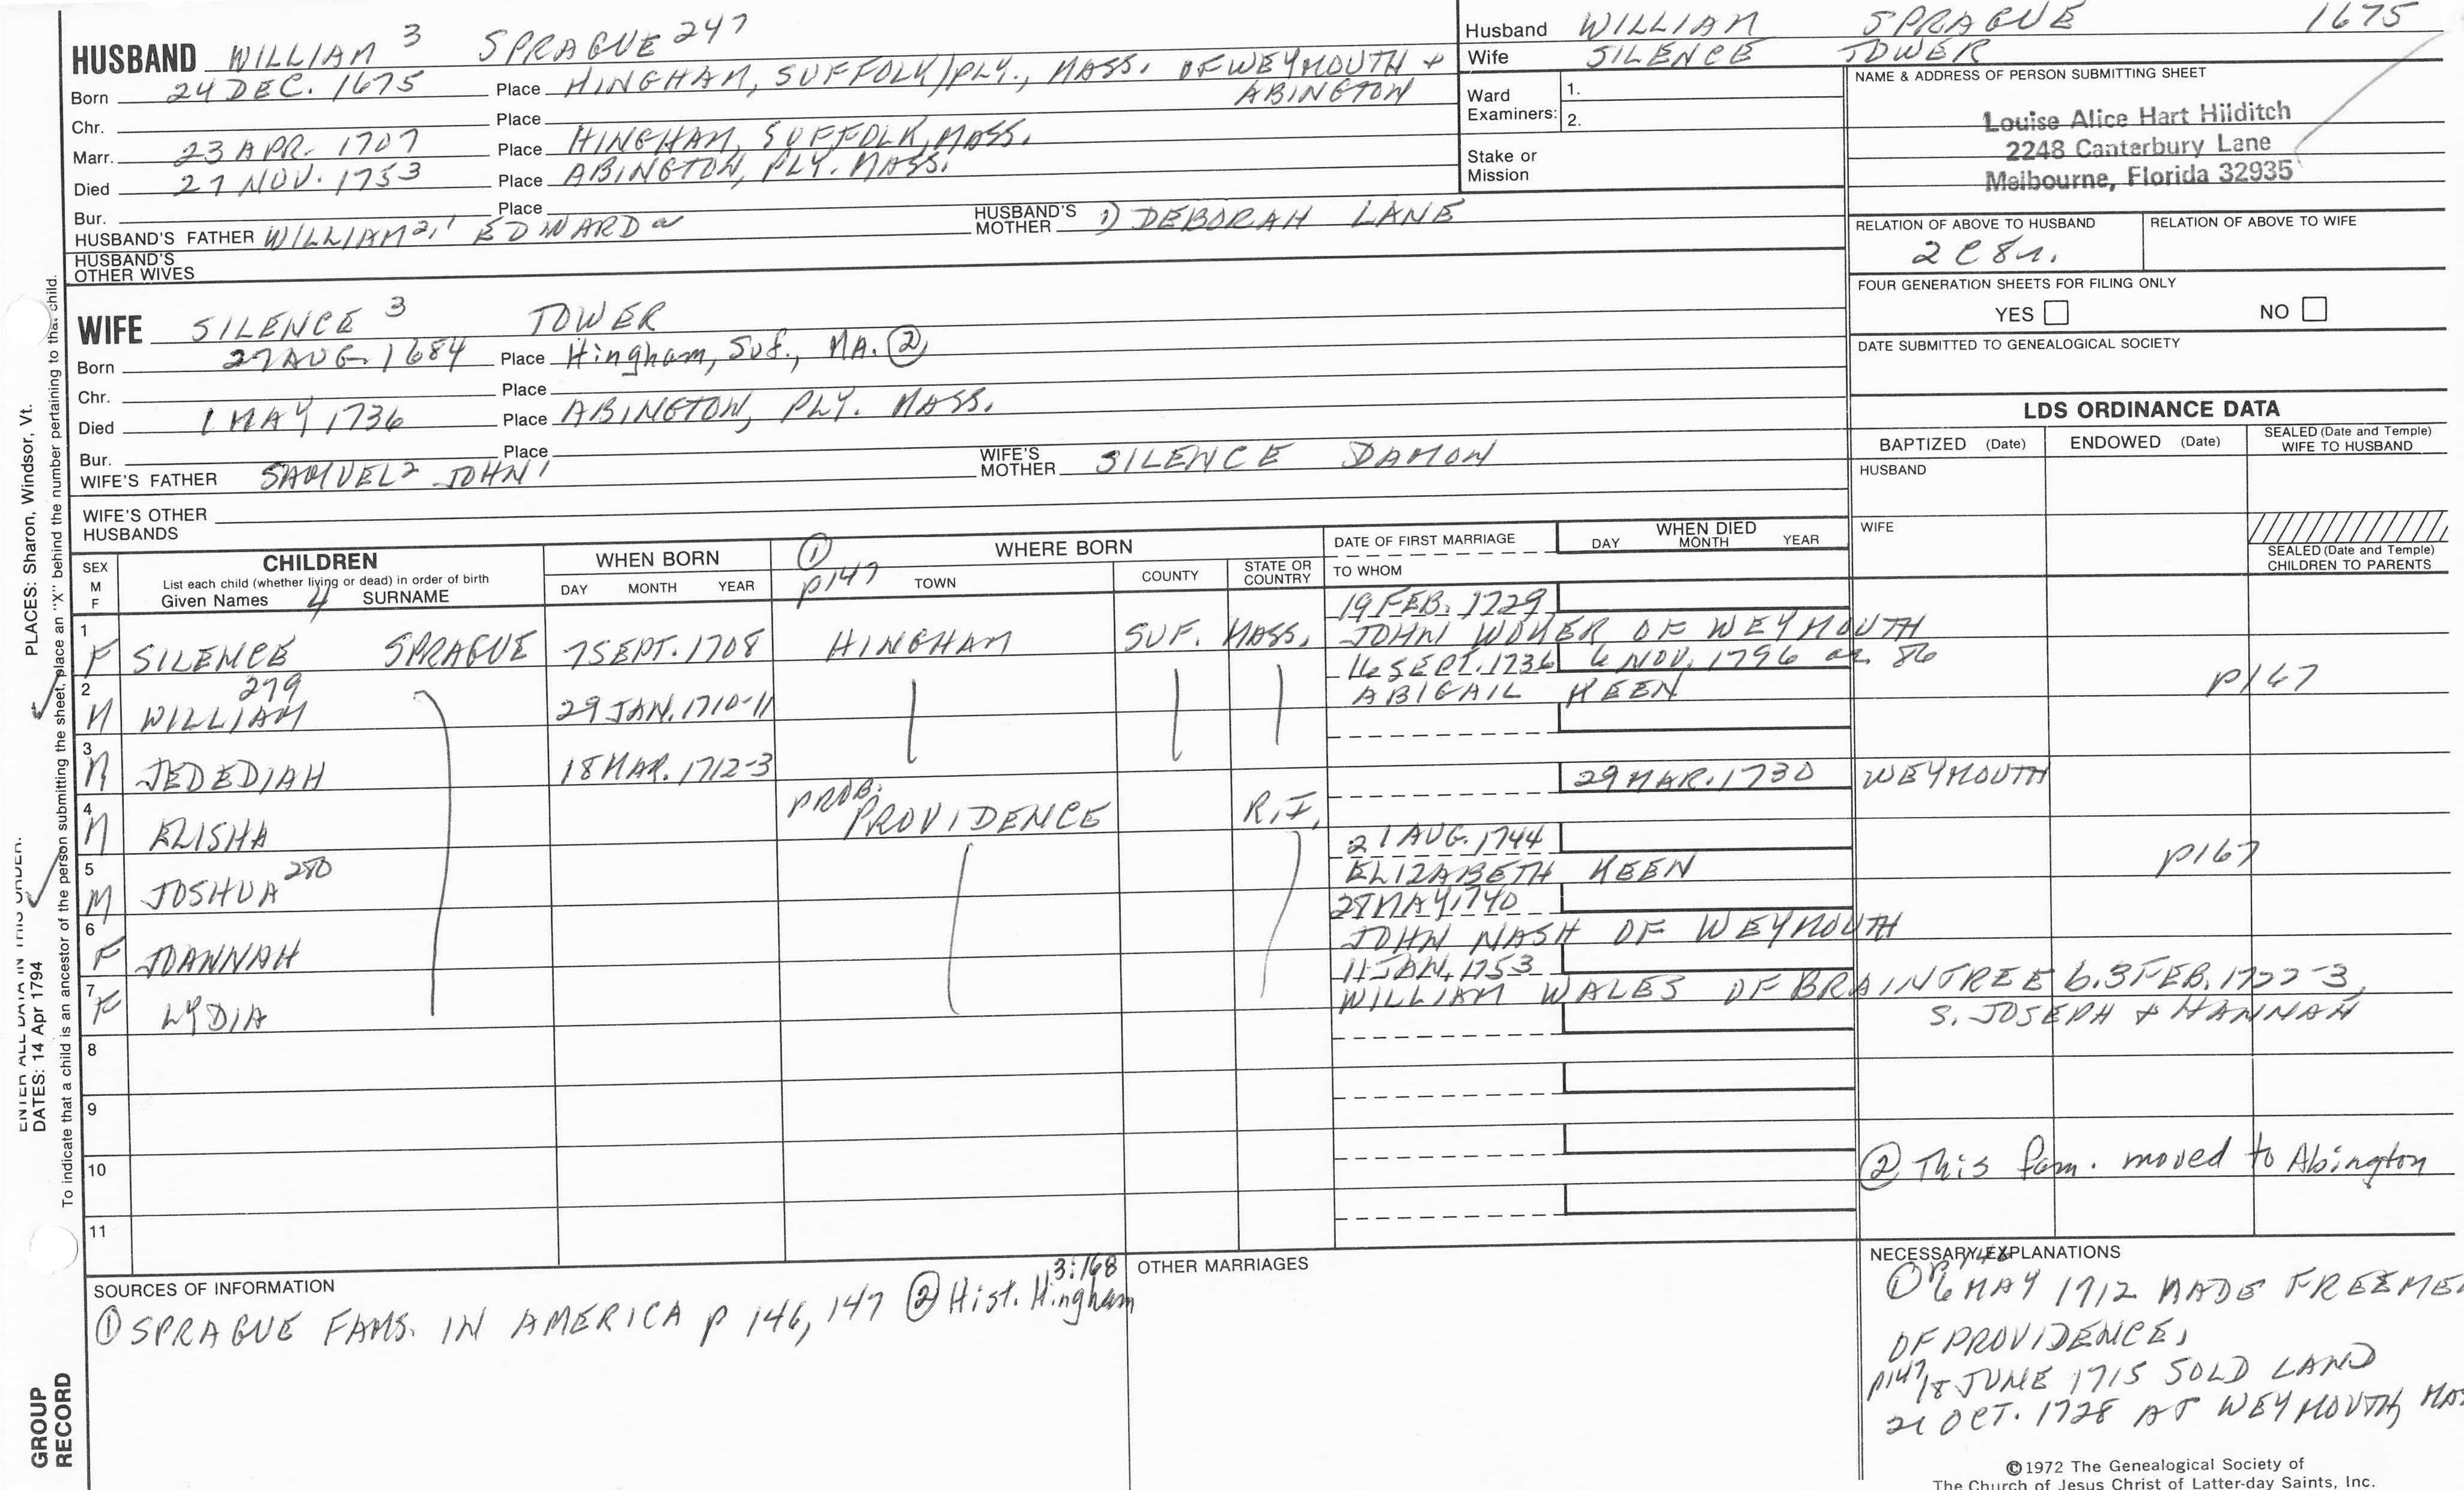 HUSBAND WILLIAM 3 SPRAGUE 247
Born 24 DEC. 1675 Place HINGHAM, SUFFOLK/PLY., MASS. OF WEYMOUTH +
ABINGTON
Chr. Place
Marr. 23 APR. 1707 Place HINGHAM, SUFFOLK, MASS.
Died 27 NOV. 1753 Place ABINGTON, PLY. MASS.
Bur. Place
HUSBAND'S FATHER WILLIAM 2,1 EDWARD a HUSBAND'S MOTHER 1) DEBORAH LANE
HUSBAND'S OTHER WIVES
Husband WILLIAM SPRAGUE 1675
Wife SILENCE TOWER
Ward Examiners: 1.
2.
Stake or Mission
NAME & ADDRESS OF PERSON SUBMITTING SHEET
Louise Alice Hart Hilditch
2248 Canterbury Lane
Melbourne, Florida 32935
RELATION OF ABOVE TO HUSBAND RELATION OF ABOVE TO WIFE
2 C 8 r.
FOUR GENERATION SHEETS FOR FILING ONLY
YES NO
DATE SUBMITTED TO GENEALOGICAL SOCIETY
WIFE SILENCE 3 TOWER
Born 27 AUG. 1684 Place Hingham, Suf., MA. ②
Chr. Place
Died 1 MAY 1736 Place ABINGTON, PLY. MASS.
Bur. Place
WIFE'S FATHER SAMUEL 2 JOHN 1 WIFE'S MOTHER SILENCE DAMON
WIFE'S OTHER HUSBANDS
LDS ORDINANCE DATA
BAPTIZED (Date) ENDOWED (Date) SEALED (Date and Temple) WIFE TO HUSBAND
HUSBAND
WIFE
SEALED (Date and Temple) CHILDREN TO PARENTS
SEX M F
CHILDREN
List each child (whether living or dead) in order of birth
Given Names 4 SURNAME
WHEN BORN
DAY MONTH YEAR
① p147
WHERE BORN
TOWN COUNTY STATE OR COUNTRY
DATE OF FIRST MARRIAGE
TO WHOM
WHEN DIED
DAY MONTH YEAR
19 FEB. 1729
1 F SILENCE SPRAGUE 7 SEPT. 1708 HINGHAM SUF. MASS. JOHN OF WEYMOUTH
16 SEPT. 1736 6 NOV. 1796 ae. 86
2 M WILLIAM 279 29 JAN. 1710-11 ABIGAIL KEEN p167
3 M JEDEDIAH 18 MAR. 1712-3
29 MAR. 1730 WEYMOUTH
4 M ELISHA PROB. PROVIDENCE R.I.
21 AUG. 1744
5 M JOSHUA 280 ELIZABETH KEEN p167
28 MAY 1740
6 F JOANNAH JOHN NASH OF WEYMOUTH
11 JAN. 1753
7 F LYDIA WILLIAM WALES OF BRAINTREE b. 3 FEB. 1722-3,
S. JOSEPH + HANNAH
8
9
10 ② This fam. moved to Abington
11
SOURCES OF INFORMATION
① SPRAGUE FAMS. IN AMERICA p 146, 147 ② Hist. Hingham 3:168
OTHER MARRIAGES
NECESSARY EXPLANATIONS
① 6 MAY 1712 MADE FREEMEN
OF PROVIDENCE,
p147 18 JUNE 1715 SOLD LAND
21 OCT. 1728 AT WEYMOUTH
©1972 The Genealogical Society of
The Church of Jesus Christ of Latter-day Saints, Inc.
PLACES: Sharon, Windsor, Vt.
ENTER ALL DATA IN THIS ORDER.
DATES: 14 Apr 1794
To indicate that a child is an ancestor of the person submitting the sheet, place an "X" behind the number pertaining to that child.
GROUP
RECORD